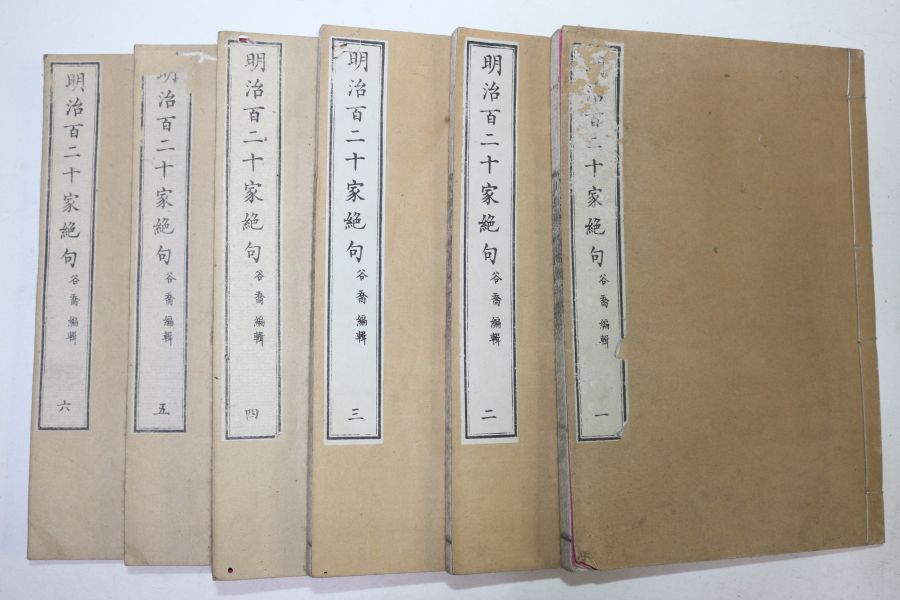 治百二十家絶句 谷喬編輯 一
明治百二十家絶句 谷喬編輯 二
明治百二十家絶句 谷喬編輯 三
明治百二十家絶句 谷喬編輯 四
明治百二十家絶句 谷喬編輯 五
明治百二十家絶句 谷喬編輯 六